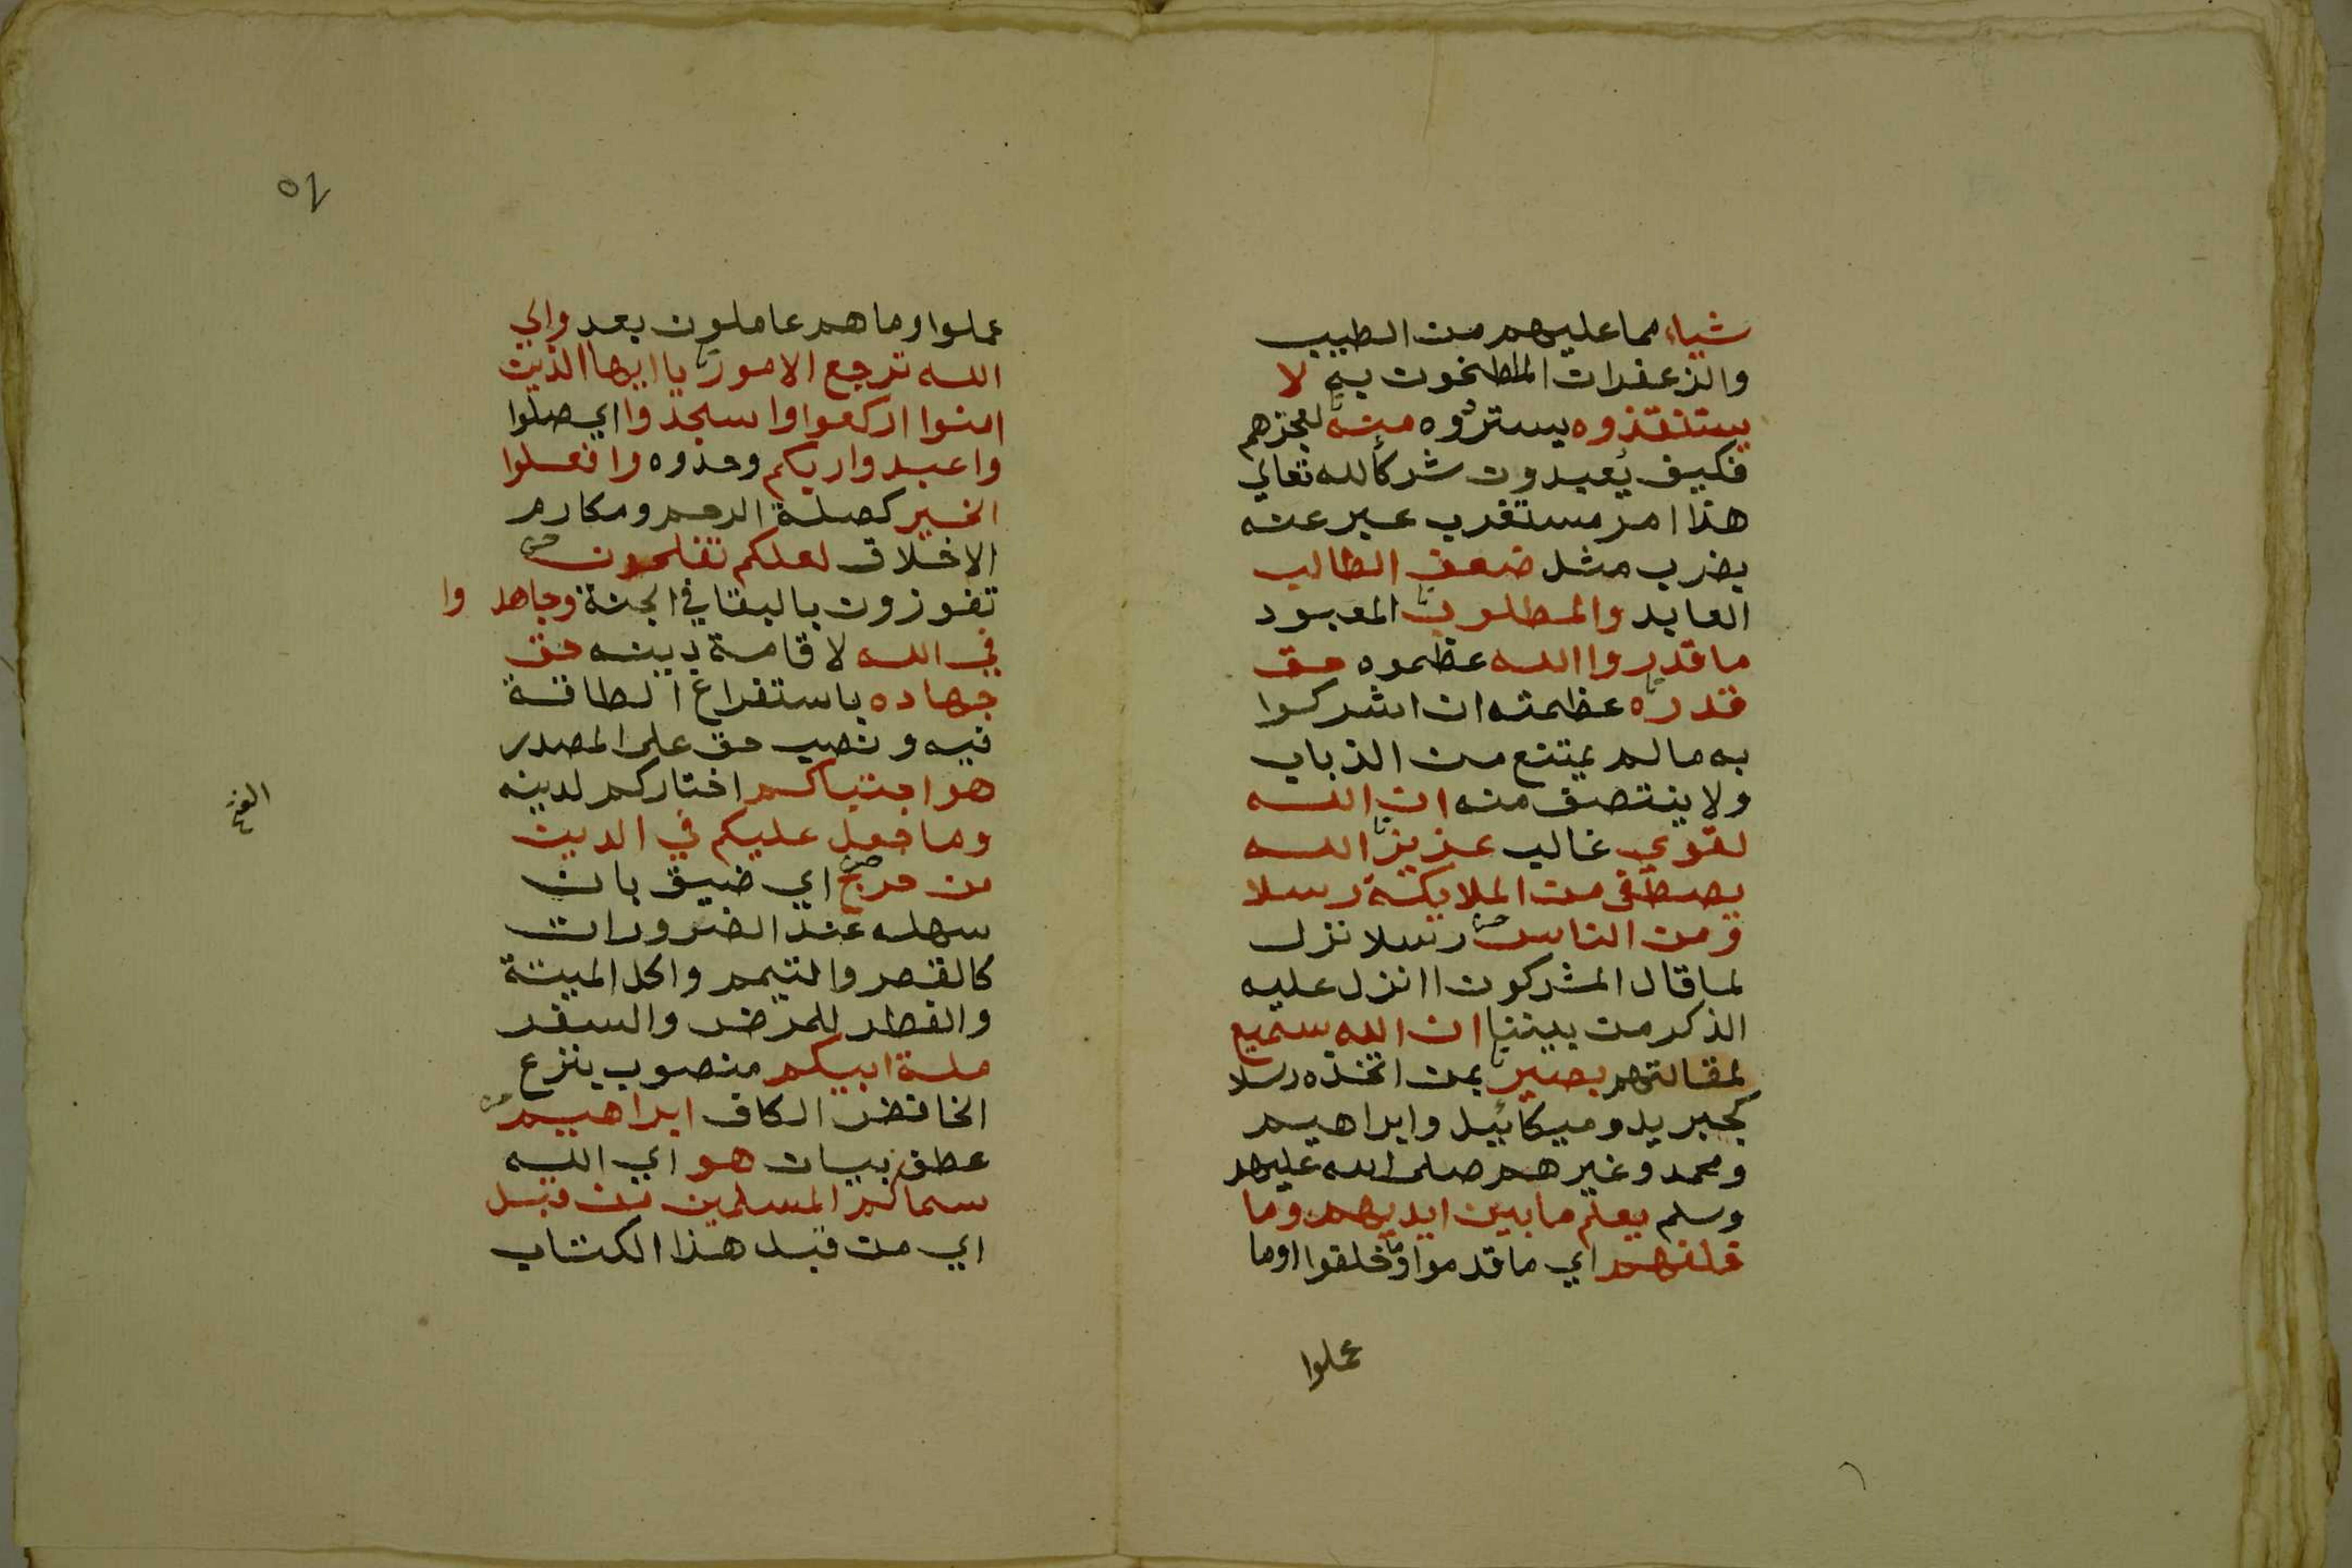 شياء مما عليهم من الطيب
والزعفران الملطخون به لا
يستنقذوه يستردوه منه لعجزهم
فكيف يعبدون شركا لله تعالي
هذا امر مستغرب عبر عنه
بضرب مثل ضعف الطالب
العابد والمطلوب المعبود
ما قدروا الله عظموه حق
قدره عظمته ان اشركوا
به ما لم يمتنع من الذباب
ولا ينتصف منه ان الله
لقوي غالب عزيز الله
يصطفي من الملايكة رسلا
ومن الناس رسلا نزل
لما قال المشركون اانزل عليه
الذكر من بيننا ان الله سميع
لمقالتهم بصير بمن اتخذه رسلا
كجبريل وميكائيل وابراهيم
ومحمد وغيرهم صلى الله عليهم
وسلم يعلم ما بين ايديهم وما
خلفهم اي ما قدموا وما خلفوا اوما
عملوا
عملوا وما هم عاملون بعد والي
الله ترجع الامور يا ايها الذين
امنوا اركعوا واسجدوا اي صلوا
واعبدوا ربكم وحدوه وافعلوا
الخير كصلة الرحم ومكارم
الاخلاق لعلكم تفلحون
تفوزون بالبقا في الجنة وجاهدوا
في الله لاقامة دينه حق
جهاده باستفراغ الطاقة
فيه ونصب حق على المصدر
هو اجتباكم اختاركم لدينه
وما جعل عليكم في الدين
من حرج اي ضيق بان
سهله عند الضرورات
كالقصر والتيمم واكل الميتة
والفطر للمرض والسفر
ملة ابيكم منصوب بنزع
الخافض الكاف ابراهيم
عطف بيان هو اي الله
سماكم المسلمين من قبل
اي من قبل هذا الكتاب